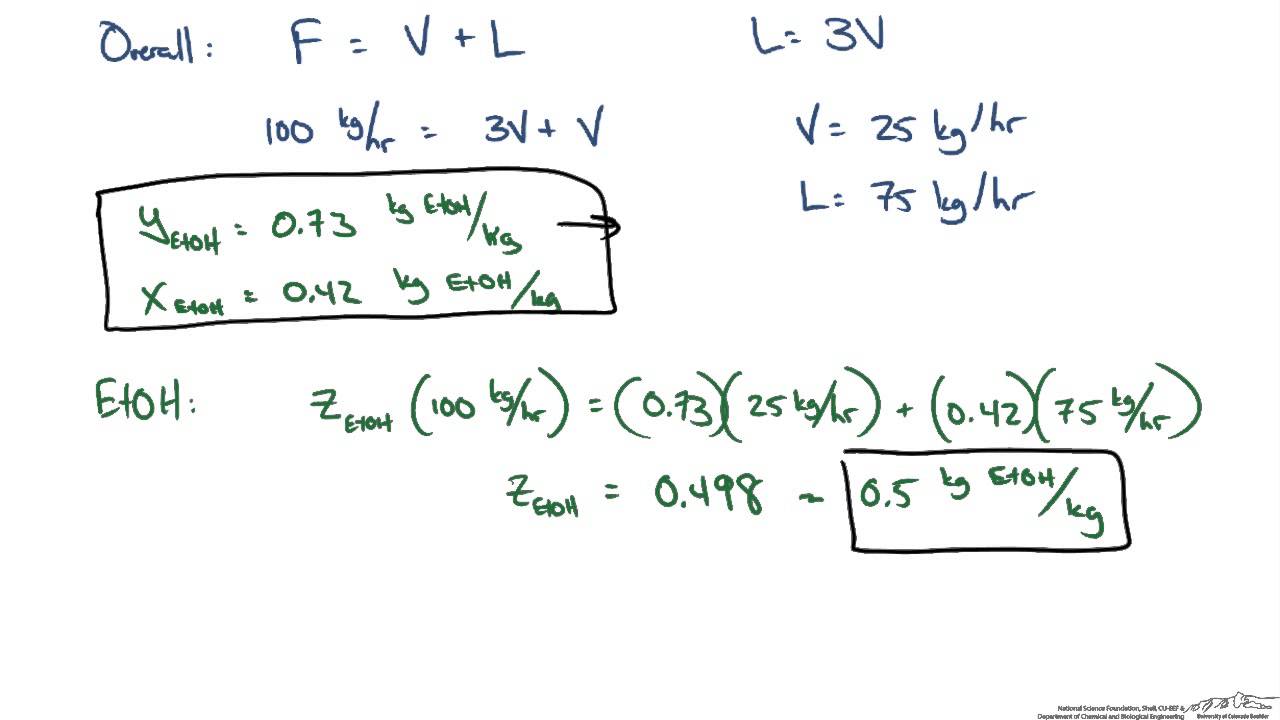 Overall: F = V + L
L = 3V
100 kg/hr = 3V + V
V = 25 kg/hr
L = 75 kg/hr
y EtOH = 0.73 kg EtOH/kg →
x EtOH = 0.42 kg EtOH/kg
EtOH: z EtOH (100 kg/hr) = (0.73)(25 kg/hr) + (0.42)(75 kg/hr)
z EtOH = 0.498 ~ 0.5 kg EtOH/kg
National Science Foundation, Shell, CU-EEF &
Department of Chemical and Biological Engineering
University of Colorado Boulder